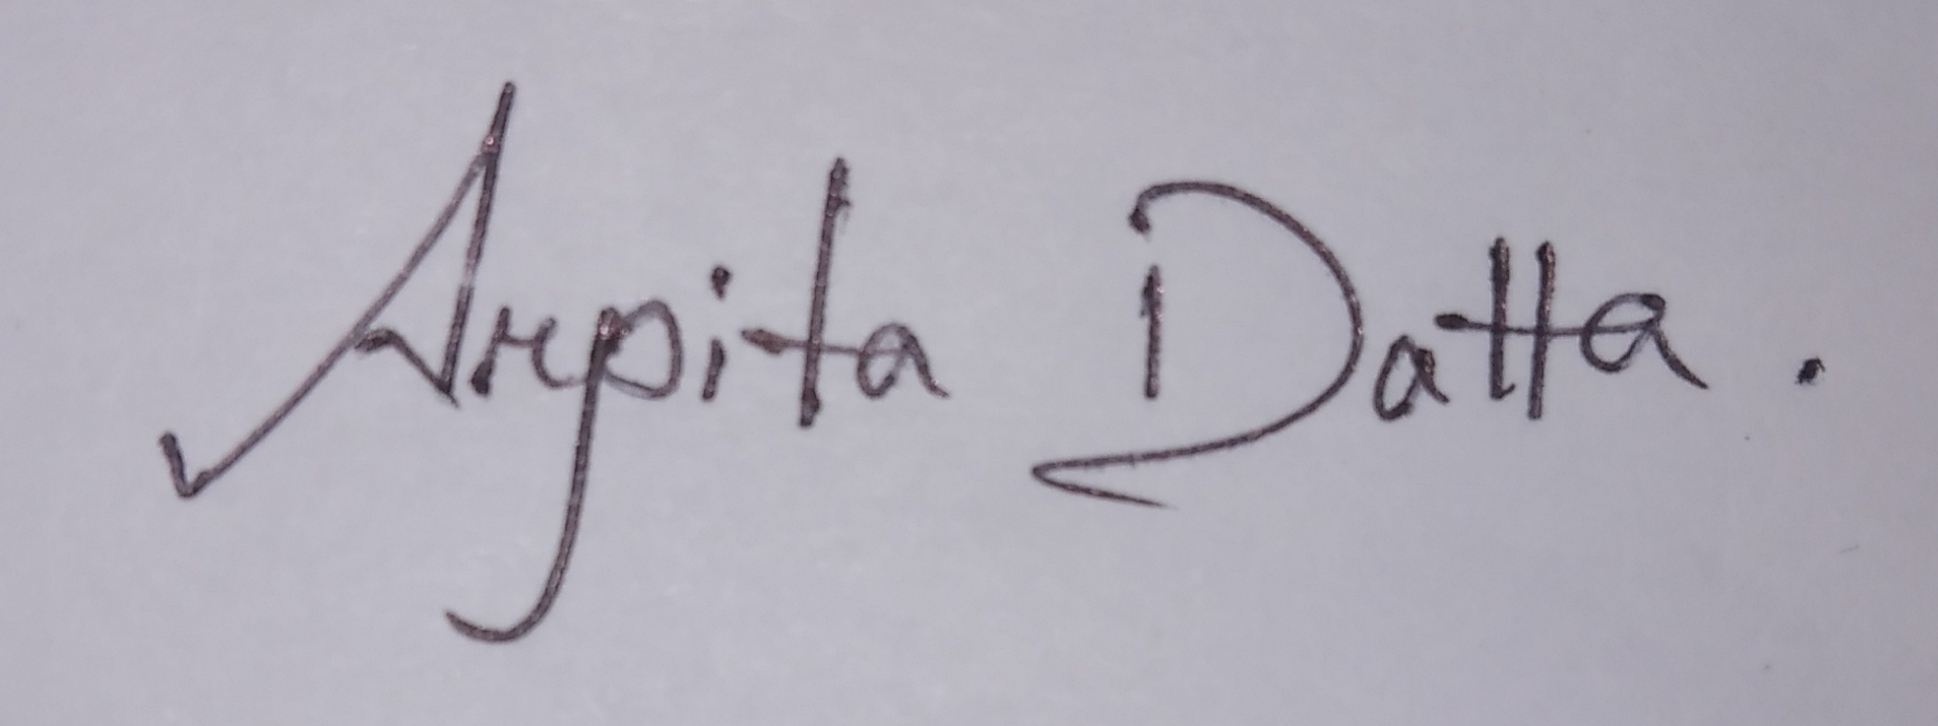 Arpita Datta.